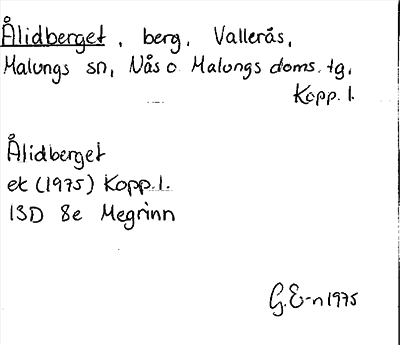 Ålidberget, berg, Vallerås,
Malungs sn, Nås o Malungs doms. tg,
Kopp. l.
Ålidberget
ek (1975) Kopp. l.
13D 8e Megrinn
G.E-n 1975